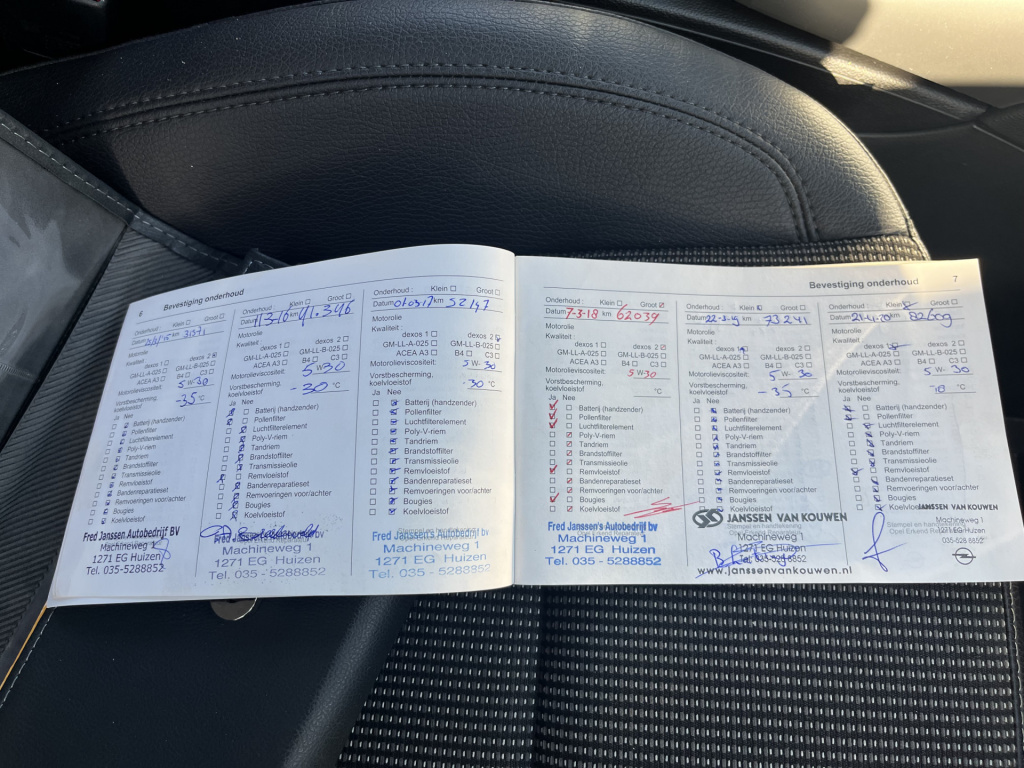 6
Bevestiging onderhoud
Onderhoud : Klein Groot
Datum km 31571
Motorolie
Kwaliteit :
dexos 1 dexos 2
GM-LL-A-025 GM-LL-B-025
ACEA A3 B4 C3
Motorolieviscositeit: 5 W-30
Vorstbescherming, koelvloeistof -35 °C
Ja Nee
Batterij (handzender)
Pollenfilter
Luchtfilterelement
Poly-V-riem
Tandriem
Brandstoffilter
Transmissieolie
Remvloeistof
Bandenreparatieset
Remvoeringen voor/achter
Bougies
Koelvloeistof
Fred Janssen's Autobedrijf BV
Machineweg 1
1271 EG Huizen
Tel. 035-5288852
Onderhoud : Klein Groot
Datum km 41.346
Motorolie
Kwaliteit :
dexos 1 dexos 2
GM-LL-A-025 GM-LL-B-025
ACEA A3 B4 C3
Motorolieviscositeit: 5 W 30
Vorstbescherming, koelvloeistof -30 °C
Ja Nee
Batterij (handzender)
Pollenfilter
Luchtfilterelement
Poly-V-riem
Tandriem
Brandstoffilter
Transmissieolie
Remvloeistof
Bandenreparatieset
Remvoeringen voor/achter
Bougies
Koelvloeistof
Machineweg 1
1271 EG Huizen
Tel. 035 - 5288852
Onderhoud : Klein Groot
Datum 01-03-17 km 52147
Motorolie
Kwaliteit :
dexos 1 dexos 2
GM-LL-A-025 GM-LL-B-025
ACEA A3 B4 C3
Motorolieviscositeit: 5 W-30
Vorstbescherming, koelvloeistof -30 °C
Ja Nee
Batterij (handzender)
Pollenfilter
Luchtfilterelement
Poly-V-riem
Tandriem
Brandstoffilter
Transmissieolie
Remvloeistof
Bandenreparatieset
Remvoeringen voor/achter
Bougies
Koelvloeistof
Fred Janssen's Autobedrijf bv
Machineweg 1
1271 EG Huizen
Tel. 035 - 5288852
Bevestiging onderhoud
7
Onderhoud : Klein Groot
Datum 7-3-18 km 62039
Motorolie
Kwaliteit :
dexos 1 dexos 2
GM-LL-A-025 GM-LL-B-025
ACEA A3 B4 C3
Motorolieviscositeit: 5 W 30
Vorstbescherming, koelvloeistof °C
Ja Nee
Batterij (handzender)
Pollenfilter
Luchtfilterelement
Poly-V-riem
Tandriem
Brandstoffilter
Transmissieolie
Remvloeistof
Bandenreparatieset
Remvoeringen voor/achter
Bougies
Koelvloeistof
Fred Janssen's Autobedrijf bv
Machineweg 1
1271 EG Huizen
Tel. 035 - 5288852
Onderhoud : Klein Groot
Datum 22-3-19 km 73241
Motorolie
Kwaliteit :
dexos 1 dexos 2
GM-LL-A-025 GM-LL-B-025
ACEA A3 B4 C3
Motorolieviscositeit: 5 W- 30
Vorstbescherming, koelvloeistof -35 °C
Ja Nee
Batterij (handzender)
Pollenfilter
Luchtfilterelement
Poly-V-riem
Tandriem
Brandstoffilter
Transmissieolie
Remvloeistof
Bandenreparatieset
Remvoeringen voor/achter
Bougies
Koelvloeistof
JANSSEN VAN KOUWEN
Machineweg 1
1271 EG Huizen
Tel. 035-5288852
www.janssenvankouwen.nl
Onderhoud : Klein Groot
Datum km
Motorolie
Kwaliteit :
dexos 1 dexos 2
GM-LL-A-025 GM-LL-B-025
ACEA A3 B4 C3
Motorolieviscositeit: 5 W- 30
Vorstbescherming, koelvloeistof °C
Ja Nee
Batterij (handzender)
Pollenfilter
Luchtfilterelement
Poly-V-riem
Tandriem
Brandstoffilter
Transmissieolie
Remvloeistof
Bandenreparatieset
Remvoeringen voor/achter
Bougies
Koelvloeistof
JANSSEN VAN KOUWEN
Machineweg 1
1271 EG Huizen
035-528 8852